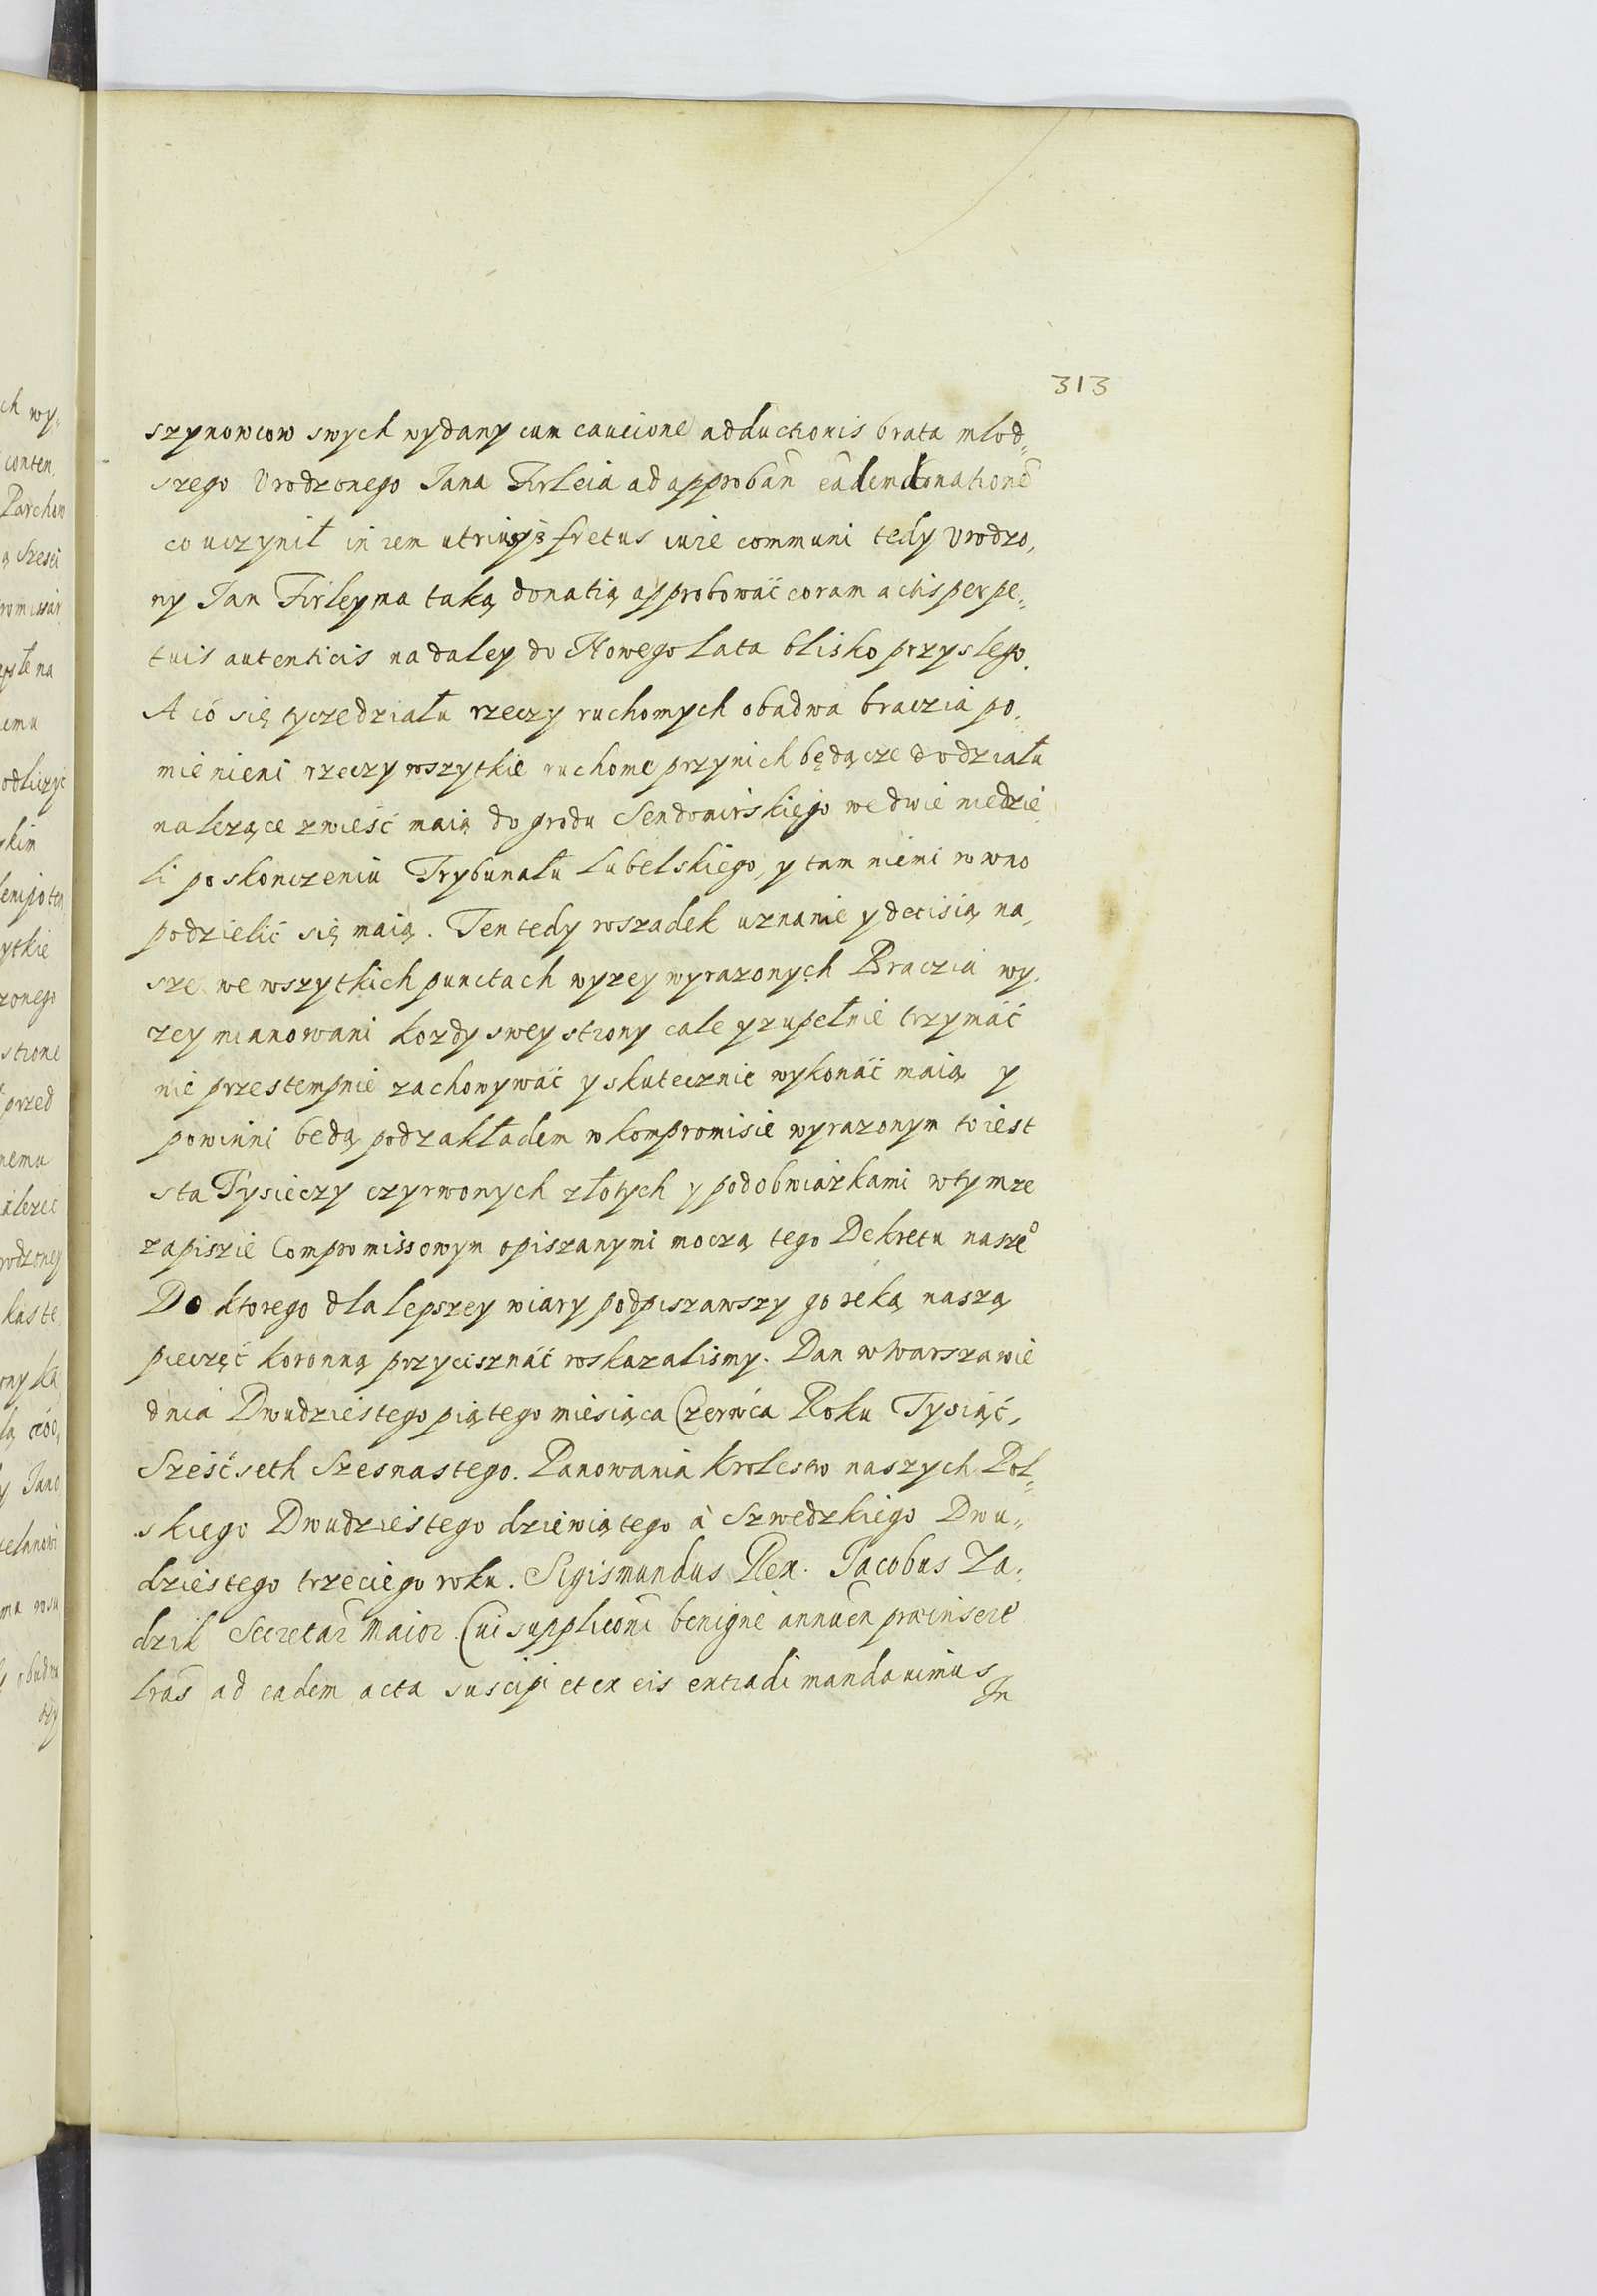 313
szynowcow swych wydany cum caucione adductionis brata młod„
szego Vrodzonego Jana Firleia ad approbañ eãdem donationẽ
co uczynił in rem utriusqꝫ fretus iure communi tedy Vrodzo„
ny Jan Firley ma taką donatią approbować coram actis perpe„
tuis autenticis nadaley do Nowego lata blisko przyslego.
A có się tycze działu rzeczy ruchomych obadwa braczia po„
mienieni rzeczy wszytkie ruchome przy nich będącze do działu
nalezące zwieść maią do grodu Sendomirskiego we dwie niedzie„
li po skonczeniu Trybunału lubelskiego, y tam niemi rowno
podzielić się maią. Ten tedy rosządek uznanie y decisią na„
sze we wszytkich punctach wyzey wyrazonych Braczia wy„
zey mianowani kozdy swey strony cale y zupełnie trzymáć
nie przestempnie zachowywáć y skutecznie wykonáć maią y
powinni będą pod zakładem w kompromisie wyrazonym to iest
sta Tysieczy czyrwonych złotych y pod obwiązkami w tymze
zapiszie Compromissowym opiszanymi moczą tego Dekretu nasze⁰
Do ktorego dla lepszey wiary podpiszawszy go ręką naszą
pieczęć koronną przycisznáć roskazalismy. Dan w Warszawie
dnia Dwudziestego piątego miesiąca Czerwca Roku Tysiąć„
Sześćseth Szesnastego. Panowania Krolestw naszych Pol„
skiego Dwudziestego dziewiątego à Szwedzkiego Dwu„
dziestego trzeciego roku. Sigismundus Rex. Jacobus Za„
dzik Secretar̃ Maior. Cui supplicõni benigne annueñ præinserẽ
l̃ras ad eadem acta suscipi et ex eis extradi mandauimus
In